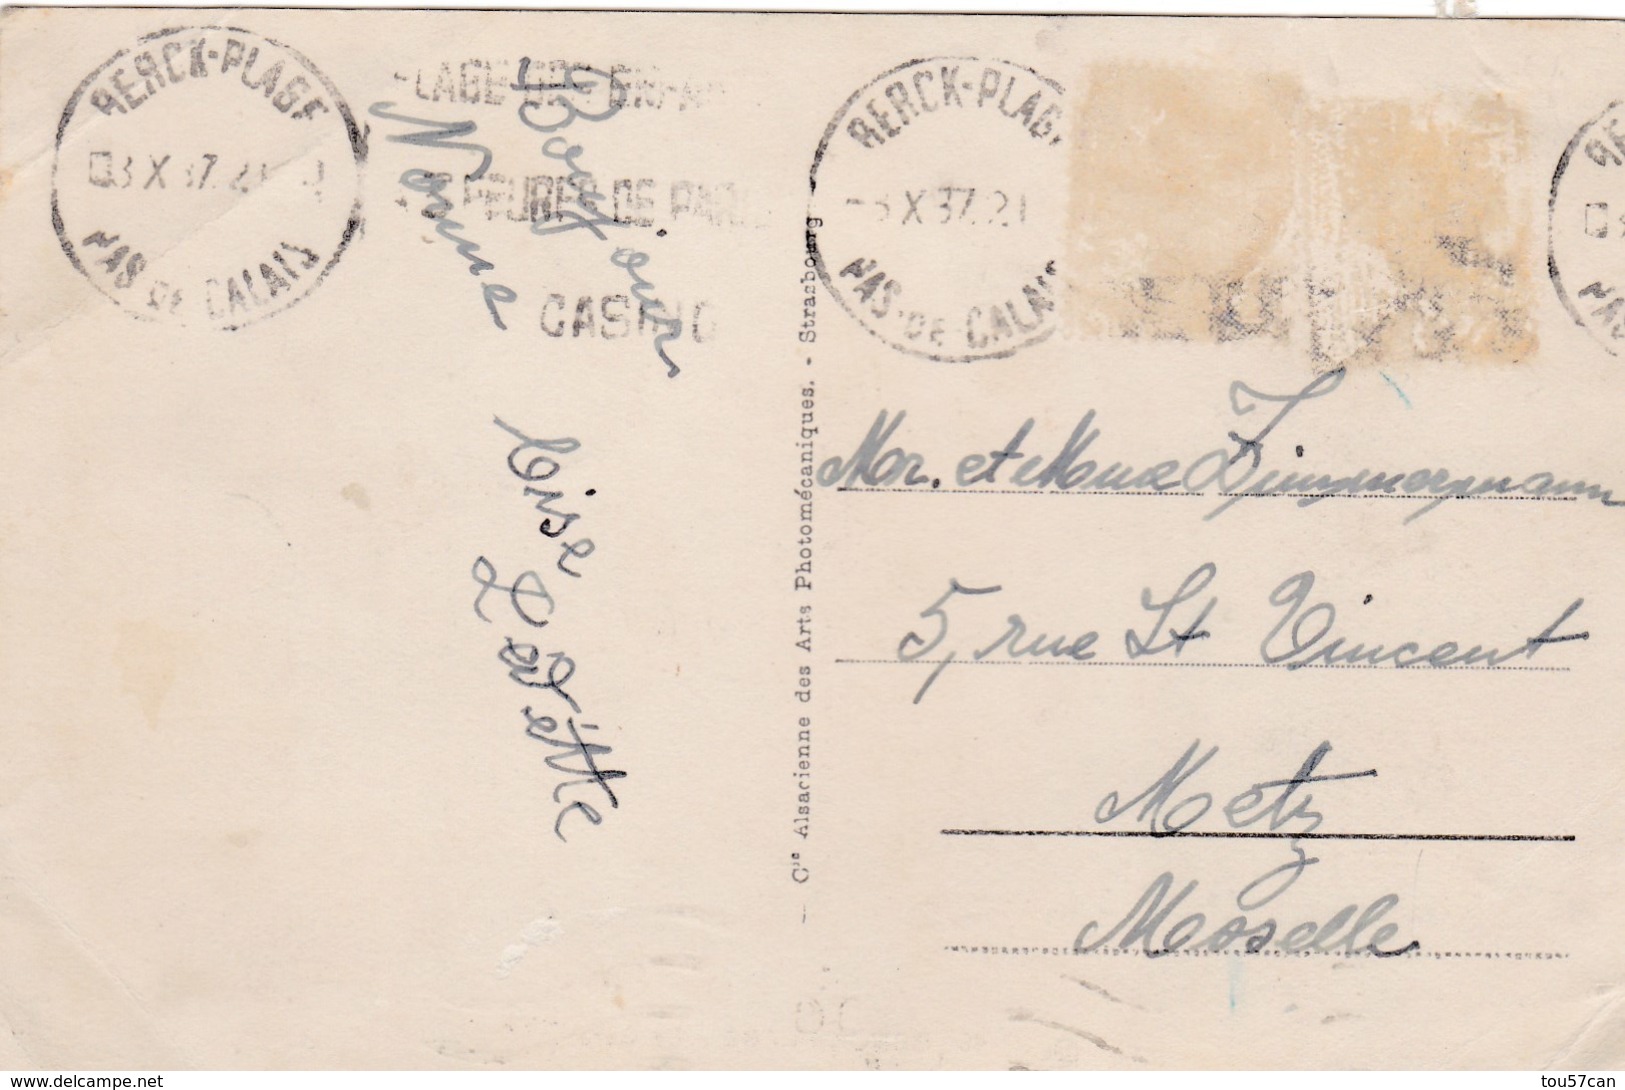 BERCK-PLAGE
3 X 37. 21
PAS-DE-CALAIS
PLAGE DES
HEURES DE PARIS
CASINO
BERCK-PLAGE
-3 X 37. 21
PAS-DE-CALAIS
Bonjour
Lise
Cie Alsacienne des Arts Photomécaniques. - Strasbourg
Mr. et Mme Zimmermann
5, rue St Vincent
Metz
Moselle
www.delcampe.net
tou57can